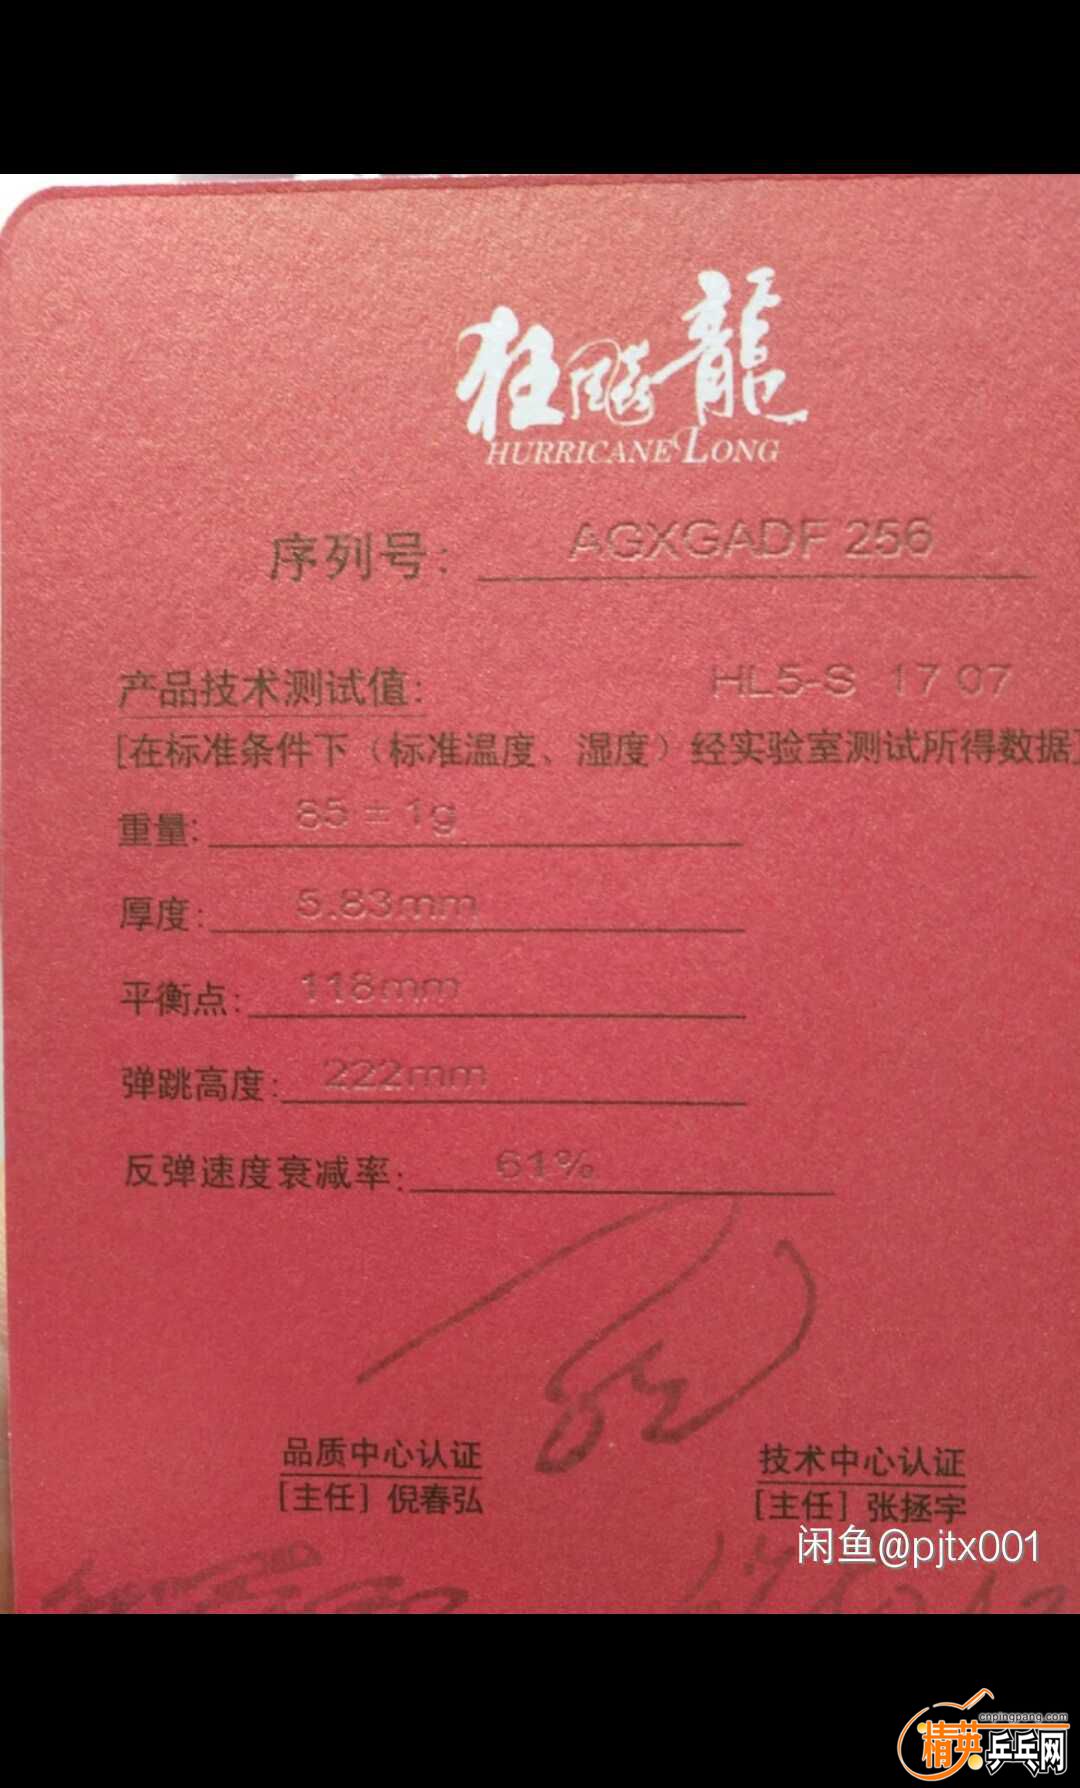 狂飚龍
HURRICANE LONG
序列号: AGXGADF 256
产品技术测试值: HL5-S 17 07
[在标准条件下（标准温度、湿度）经实验室测试所得数据]
重量: 85 ± 1g
厚度: 5.83mm
平衡点: 118mm
弹跳高度: 222mm
反弹速度衰减率: 61%
品质中心认证 技术中心认证
[主任] 倪春弘 [主任] 张拯宇
闲鱼@pjtx001
cnpingpang.com
精英乒乓网